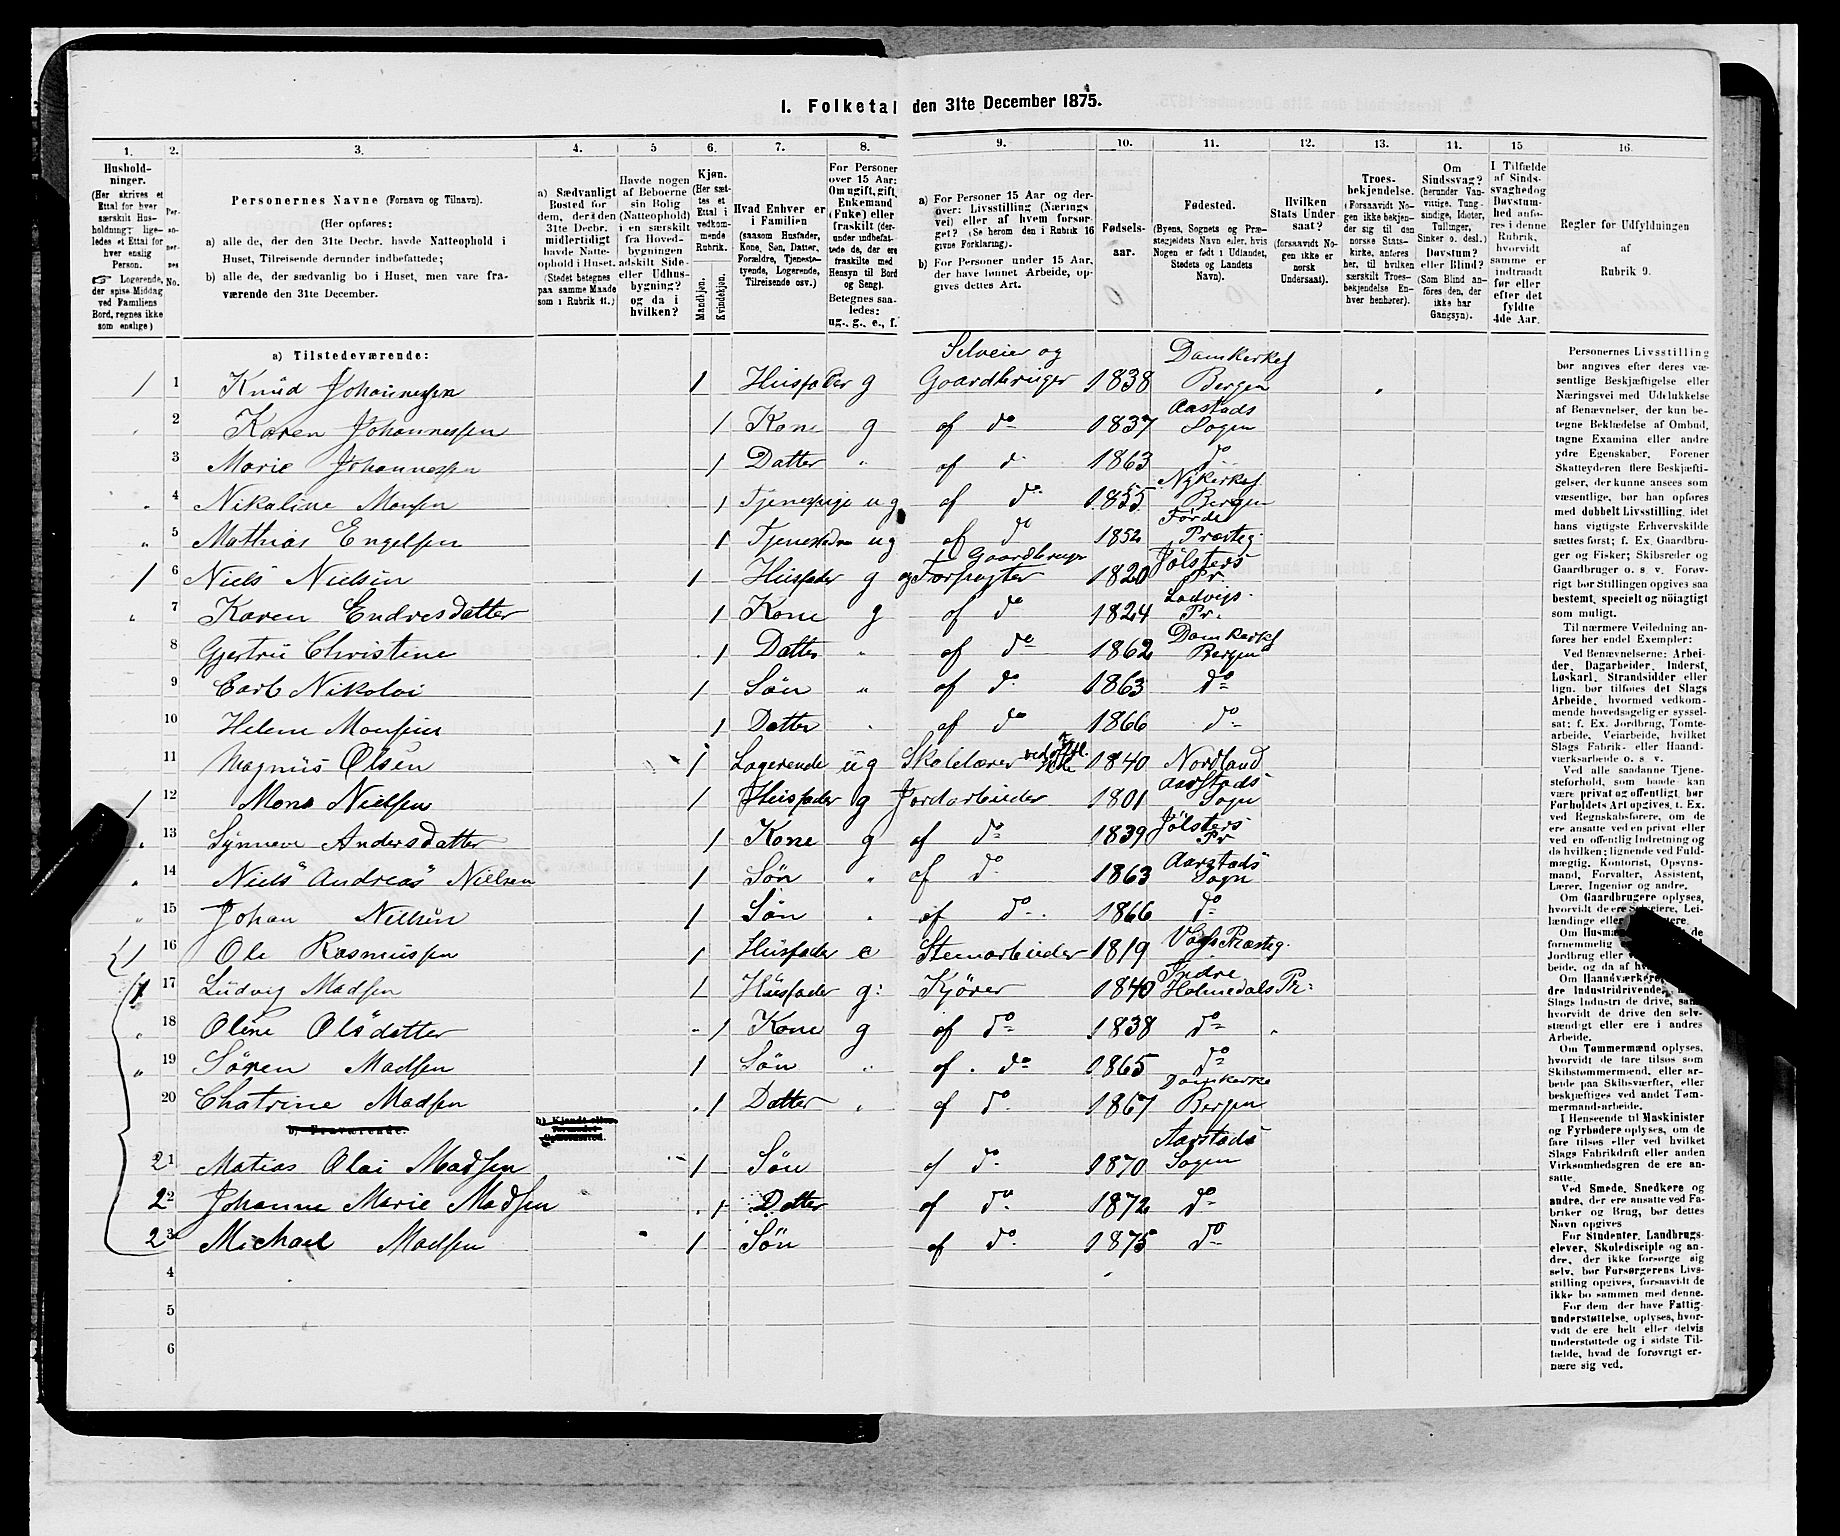 I. Folketal den 31te December 1875.
1. 2. 3. 4. 5 6. 7. 8. 9. 10. 11. 12. 13. 14. 15 16.
Hushold-
ninger.
(Her skrives et
Ettal for hver
særskilt Hus-
holdning; lige-
ledes et Ettal for
hver enslig
Person.
☞ Logerende,
der spise Middag
ved Familiens
Bord, regnes ikke
som enslige.)
Per-
so-
ner-
nes
No.
Personernes Navne (Fornavn og Tilnavn).
(Her opføres:
a) alle de, der den 31te Decbr. havde Natteophold i
Huset, Tilreisende derunder indbefattede;
b) alle de, der sædvanlig bo i Huset, men vare fra-
værende den 31te December.
a) Sædvanligt
Bosted for
dem, der den
31te Decbr.
midlertidigt
havde Natte-
ophold i Huset.
(Stedet betegnes
paa samme Maade
som i Rubrik 11.)
Havde nogen
af Beboerne
sin Bolig
(Natteophold)
i en særskilt
fra Hoved-
bygningen
adskilt Side
eller Udhus-
bygning?
og da i
hvilken?
Kjøn.
(Her sæt-
tes et
Ettal i
vedkom-
mende
Rubrik.
Mandkjøn.
Kvindekjøn.
Hvad Enhver er
i Familien
(saasom Husfader,
Kone, Søn, Datter,
Forældre, Tjeneste-
tyende, Logerende,
Tilreisende osv.)
For Personer
over 15 Aar:
Om ugift, gift,
Enkemand
(Enke) eller
fraskilt (der-
under indbefat-
tede de, der ere
fraskilte med
Hensyn til Bord
og Seng).
Betegnes saa-
ledes:
ug., g., e., f.
a) For Personer 15 Aar og der-
over: Livsstilling (Nærings-
vei) eller af hvem forsør-
get? (Se herom den i Rubrik 16
givne Forklaring).
b) For Personer under 15 Aar,
der have lønnet Arbeide, op-
gives dettes Art.
Fødsels-
aar.
Fødested.
(Byens, Sognets og Præ-
stegjeldets Navn eller, hvis
Nogen er født i Udlandet,
Stedets og Landets
Navn).
Hvilken
Stats Under-
saat?
(forsaavidt No-
gen ikke er
norsk
Undersaat).
Troes-
bekjendelse.
(Forsaavidt No-
gen ikke bekjen-
der sig til den
norske Stats-
kirke, anføres
her, til hvilken
særskilt Troes-
bekjendelse En-
hver henhører).
Om
Sindssvag?
(herunder Van-
vittige, Tung-
sindige, Idioter,
Tullinger,
Sinker o. desl.)
Døvstum?
eller Blind?
(Som Blind an-
føres den, der
ikke har
Gangsyn).
I Tilfælde
af Sinds-
svaghed og
Døvstum-
hed anfø-
res i denne
Rubrik,
hvorvidt
samme er
indtraadt
før eller
efter det
fyldte
4de Aar.
Regler for Udfyldningen
af
Rubrik 9.
a) Tilstedeværende:
1 1 Knud Johannessen 1 Husfader g Selveier og Gaardbruger 1838 Domkirkes Bergen
2 Karen Johannessen 1 Kone g af do 1837 Aarstads Sogn
3 Marie Johannessen 1 Datter " af do 1863 do
4 Nikoline Monsen 1 Tjenespige ug af do 1855 Nykirkes Bergen
5 Mathias Engelsen 1 ug af do 1852 Førde Præsteg.
1 6 Niels Nielsen 1 Husfader g Gaardbruger og Forpagter 1820 Jølsters Pr
7 Karen Endresdatter 1 Kone g af do 1824 Ladvigs Pr.
8 Christine 1 Datter " af do 1862 Domkirkes Bergen
9 Carl Nikolai 1 Søn " af do 1863 do
10 Helene Monsen 1 Datter " af do 1866 do
11 Magnus Olsen 1 Logerende ug Skolelærer 1840 Nordland
1 12 Mons Nielsen 1 Husfader g Jordarbeider 1801 Aarstads Sogn
13 Synneve Andersdatter 1 Kone g af do 1839 Jølsters Pr
14 Niels "Andreas" Nielsen 1 Søn " af do 1863 Aarstads Sogn
15 Johan Nielsen 1 Søn " af do 1866 do
1 16 Ole Rasmussen 1 Husfader e Stenarbeider 1819 Præsteg.
1 17 Ludvig Madsen 1 Husfader g: Kjører 1840 Indre Holmedals Pr:
18 Oline Olsdatter 1 Kone g af do 1838 do
19 Sören Madsen 1 Søn " af do 1865 do
20 Chatrine Madsen 1 Datter " af do 1867 Domkirke Bergen
b) Fraværende:
b) Kjendt eller
formodet
Opholdssted.
21 Matias Olai Madsen 1 Søn af do 1870 Aarstads Sogn
22 Johanne Marie Madsen 1 Datter af do 1872 do
23 Michael Madsen 1 Søn af do 1875 do
4
5
6
Personernes Livsstilling
bør angives efter deres væ-
sentlige Beskjæftigelse eller
Næringsvei med Udelukkelse
af Benævnelser, der kun be-
tegne Beklædelse af Ombud,
tagne Examina eller andre
ydre Egenskaber. Forener
Skatteyderen flere Beskjæfti-
gelser, der kunne ansees som
væsentlige, bør han opføres
med dobbelt Livsstilling, idet
hans vigtigste Erhvervskilde
sættes først; f. Ex. Gaardbru-
ger og Fisker; Skibsreder og
Gaardbruger o. s. v. Forøv-
rigt bør Stillingen opgives saa
bestemt, specielt og nøiagtigt
som muligt.
Til nærmere Veiledning an-
føres her endel Exempler:
Ved Benævnelserne: Arbei-
der, Dagarbeider, Inderst,
Løskarl, Strandsidder eller
lign. bør tilføies det Slags
Arbeide, hvormed vedkom-
mende hovedsagelig er syssel-
sat; f. Ex. Jordbrug, Tomte-
arbeide, Veiarbeide, hvilket
Slags Fabrik- eller Haand-
værksarbeide o. s. v.
Ved alle saadanne Tjene-
steforhold, som baade kan
være privat og offentligt, bør
Forholdets Art opgives, t. Ex.
ved Regnskabsførere, om de
ere ansatte ved en privat eller
ved en offentlig Indretning og
da hvilken; lignende ved Fuld-
mægtig, Kontorist, Opsyns-
mand, Forvalter, Assistent,
Lærer, Ingeniør og andre.
Om Gaardbrugere oplyses,
hvorvidt de ere Selveiere, Lei-
lændinge eller
Om
fornemmelig
Jordbrug eller
beide, og da af
Om Haandværkere
dre Industridrivende,
Slags Industri de drive, samt
hvorvidt de drive den selv-
stændigt eller ere i andres
Arbeide.
Om Tømmermænd oplyses,
hvorvidt de fare tilsøs som
Skibstømmermænd, eller ar-
beide paa Skibsværfter, eller
beskjæftiges ved andet Tøm-
mermandsarbeide.
I Henseende til Maskinister
og Fyrbødere oplyses, om de
fare tilsøs eller ved hvilket
Slags Fabrikdrift eller anden
Virksomhedsgren de ere an-
satte.
Ved Smede, Snedkere og
andre, der ere ansatte ved Fa-
briker og Brug, bør dettes
Navn opgives
For Studenter, Landbrugs-
elever, Skoledisciple og an-
dre, der ikke forsørge sig
selv, bør Forsørgerens Livs-
stilling opgives, forsaavidt de
ikke bo sammen med denne.
For dem, der have Fattig-
understøttelse, oplyses, hvor-
vidt de ere helt eller delvis
understøttede og i sidste Til-
fælde, hvad de forøvrigt er-
nære sig ved.